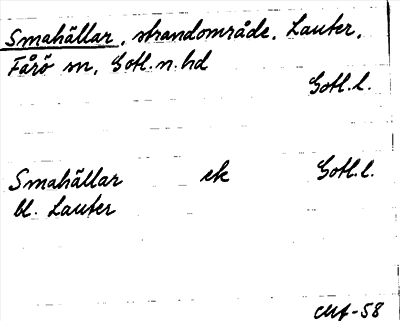 Smahällar, strandområde, Lauter,
Fårö sn, Gotl. n. hd
Gotl. l.
Smahällar ek Gotl. l.
bl. Lauter
-58